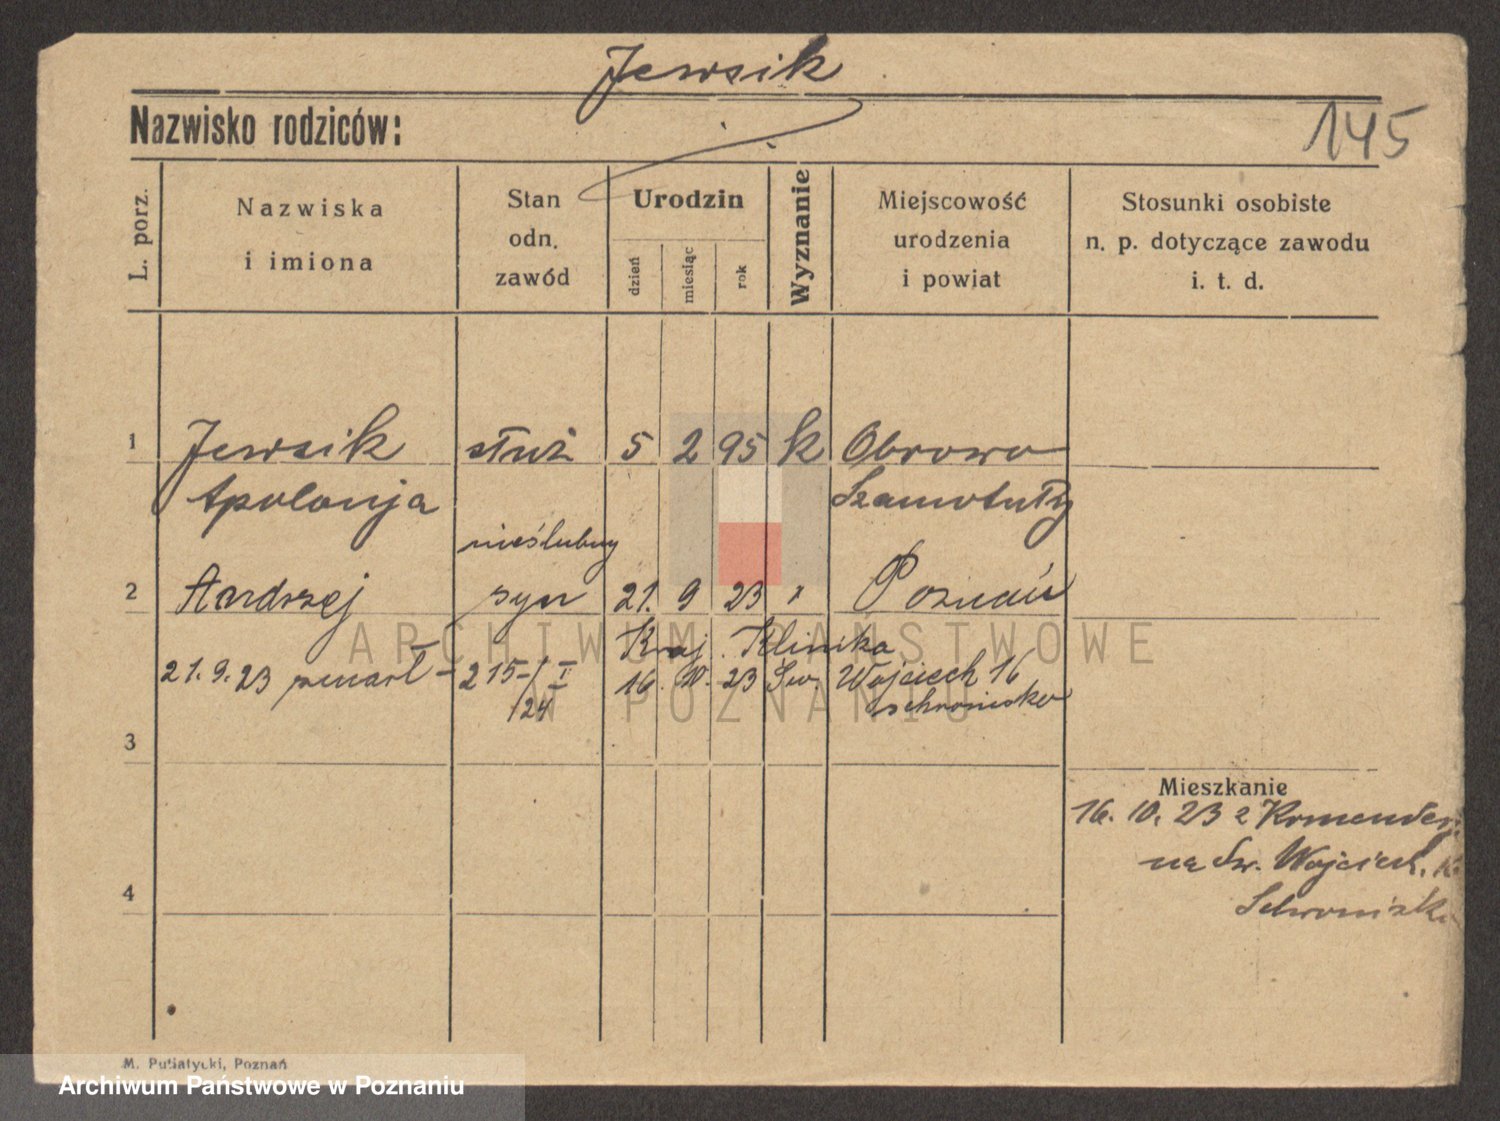 Jewsik
Nazwisko rodziców:
145
L. porz.
Nazwiska
i imiona
Stan
odn.
zawód
Urodzin
dzień
miesiąc
rok
Wyznanie
Miejscowość
urodzenia
i powiat
Stosunki osobiste
n. p. dotyczące zawodu
i. t. d.
1 Jewsik służ 5 2 95 k Obrowo
Apolonja Szamotuły
nieślubny
2 Andrzej syn 21. 9 23 Poznań
Kraj. Klinika
21. 9. 23 zmarł - 215-/I 16. 10. 23 Św. Wojciech 16
/24 schronisko
ARCHIWUM PAŃSTWOWE
W POZNANIU
3
Mieszkanie
16. 10. 23 z
na Św. Wojciech.
4
Schronisk
M. Putiatycki, Poznań
Archiwum Państwowe w Poznaniu